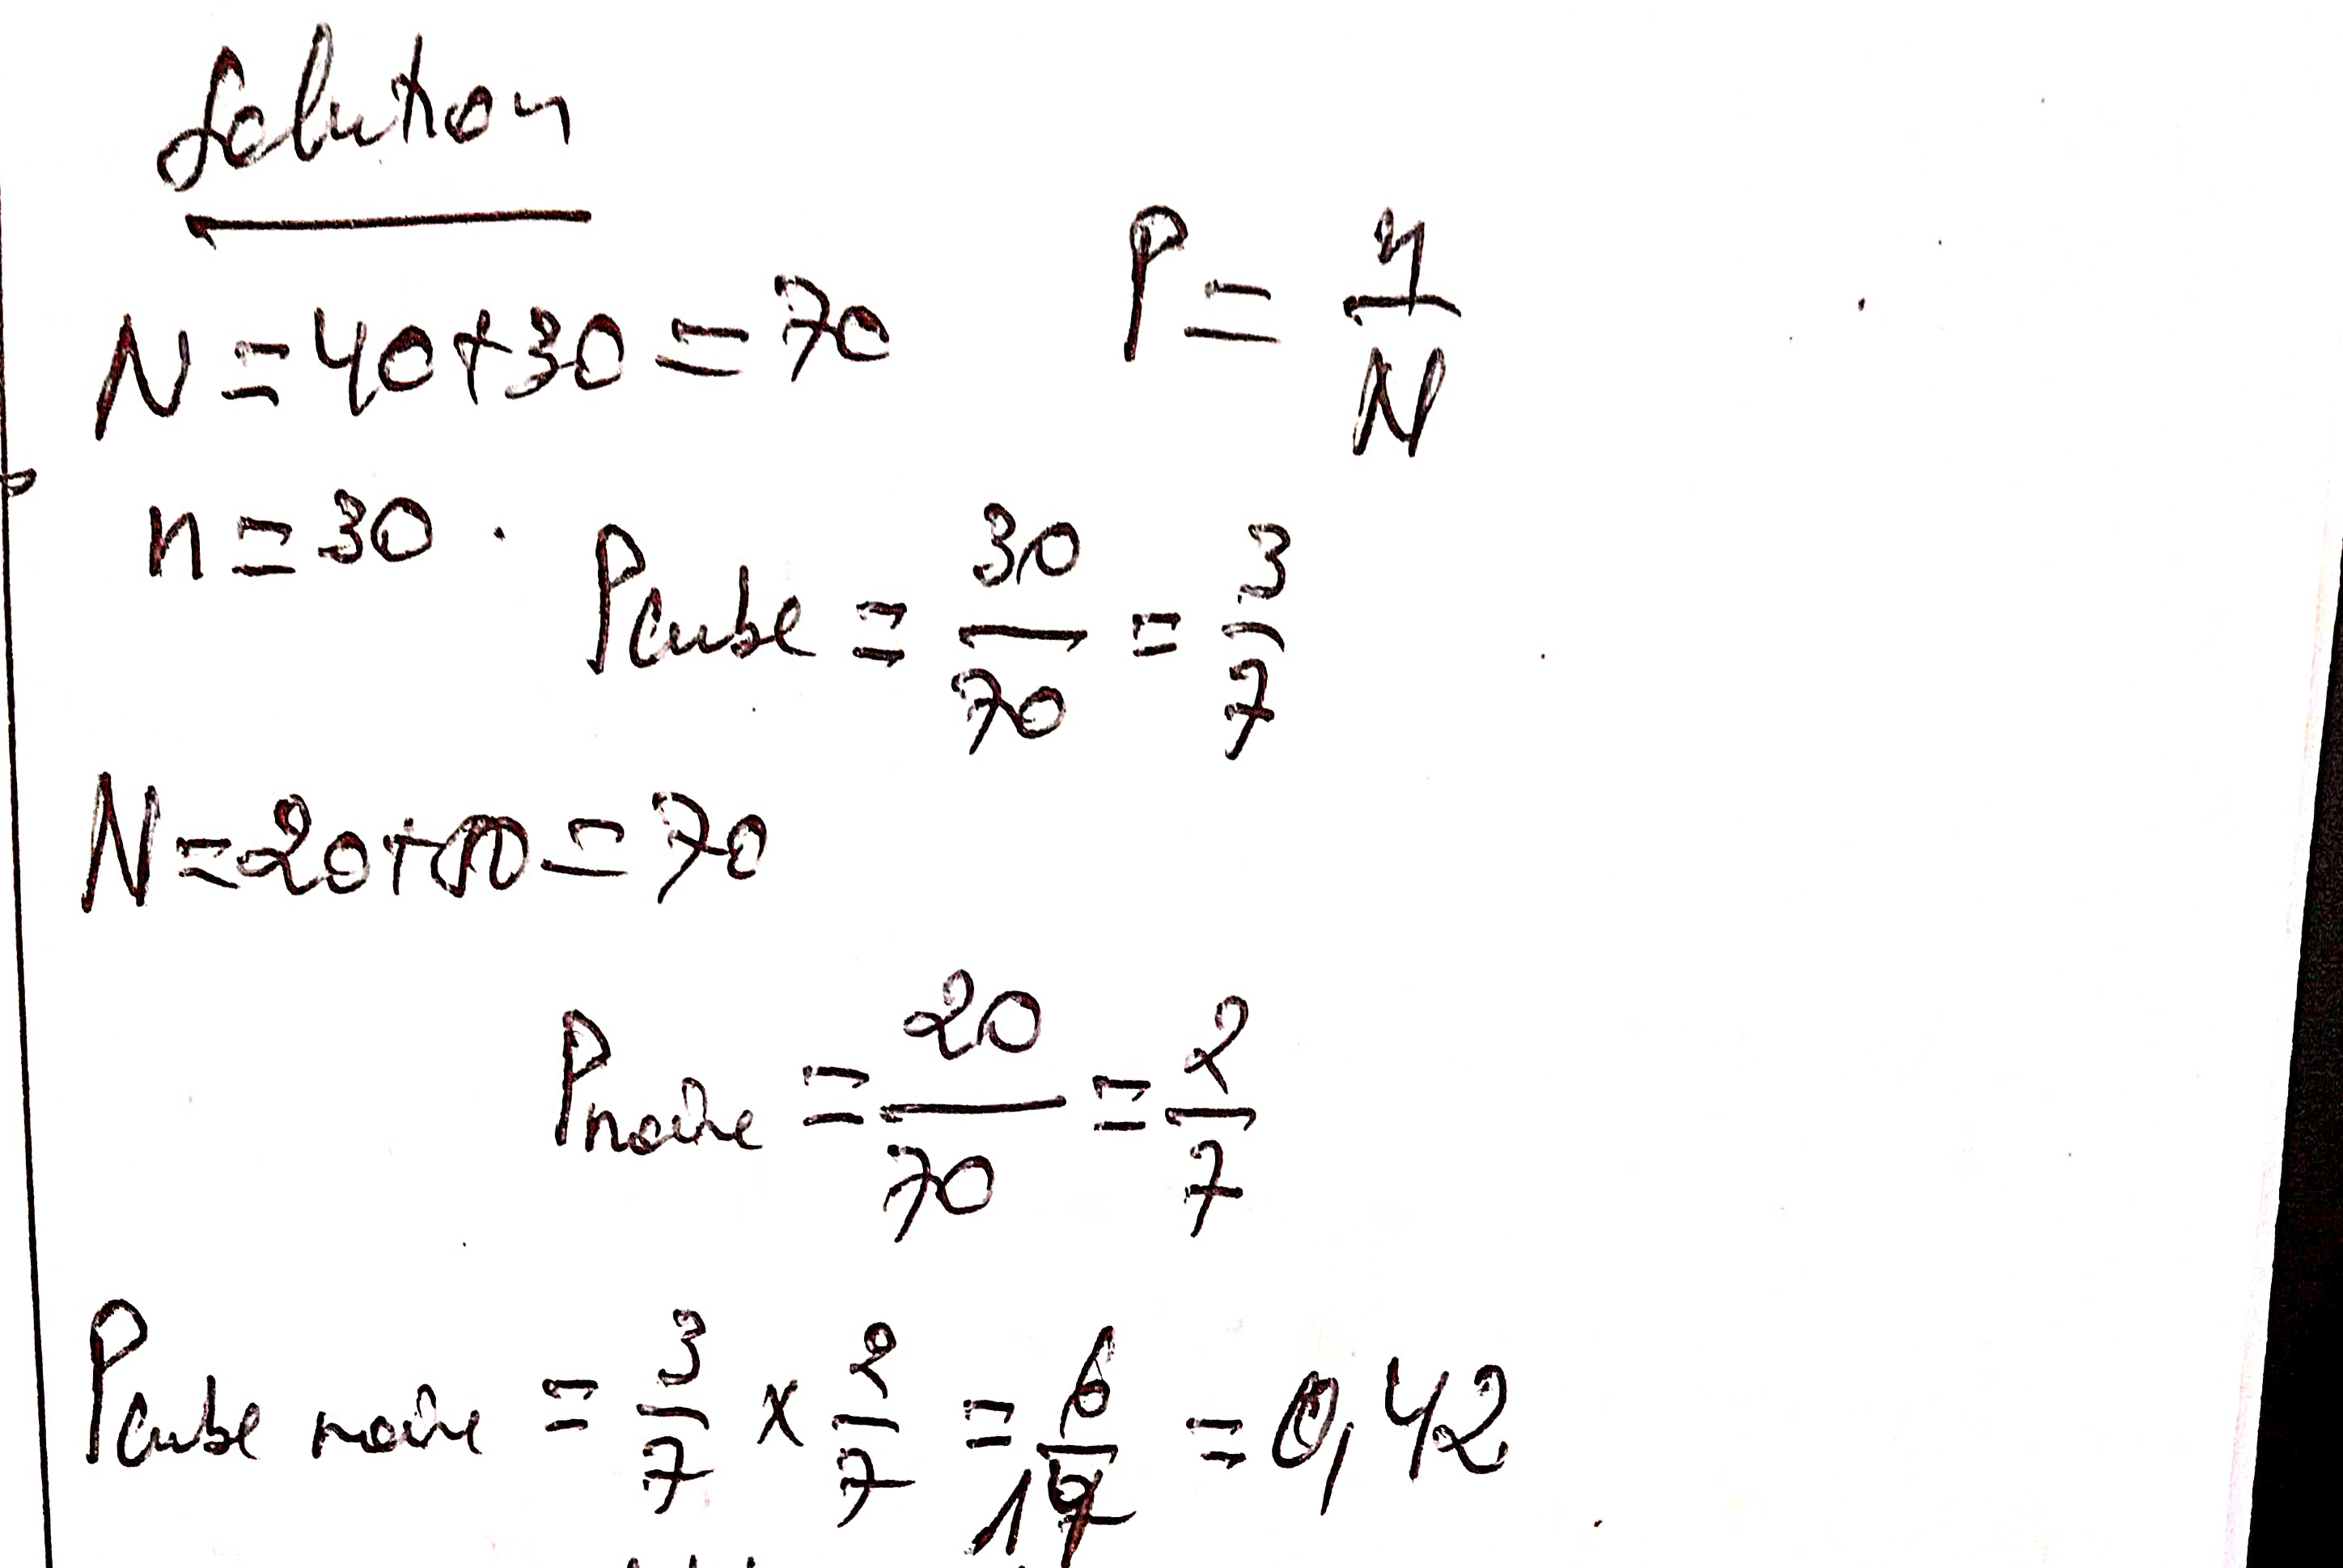 Solution
N = 40 + 30 = 70 P = n/N
n = 30 . Pcube = 30/70 = 3/7
N = 20 + 50 = 70
Pnoire = 20/70 = 2/7
Pcube noire = 3/7 x 2/7 = 6/14 = 0,42